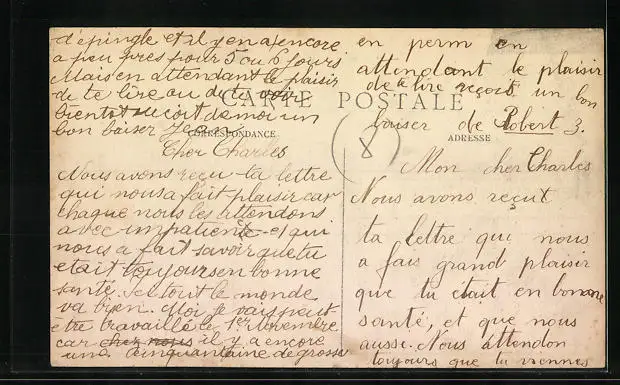 d'épingle et il y en a encore
a peu près pour 5 ou 6 jours
Mais en attendant le plaisir
de te lire ou de te voir
bientot recoit de moi un
bon baiser
CARTE POSTALE
CORRESPONDANCE
Cher Charles
Nous avons reçu ta lettre
qui nous a fait plaisir car
chaque nous les attendons
avec impatience et qui
nous a fait savoir que tu
etait toujours en bonne
santé. Ici tout le monde
va bien. Moi je vais peut
être travaillé le 1er Novembre
car chez nous il y a encore
une cinquantaine de grosse
en perm en
attendant le plaisir
de te lire reçois un bon
baiser de Robert 3.
8
ADRESSE
Mon cher Charles
Nous avons reçut
ta lettre qui nous
a fais grand plaisir
que tu était en bonne
santé, et que nous
aussi. Nous attendon
toujours que tu viennes